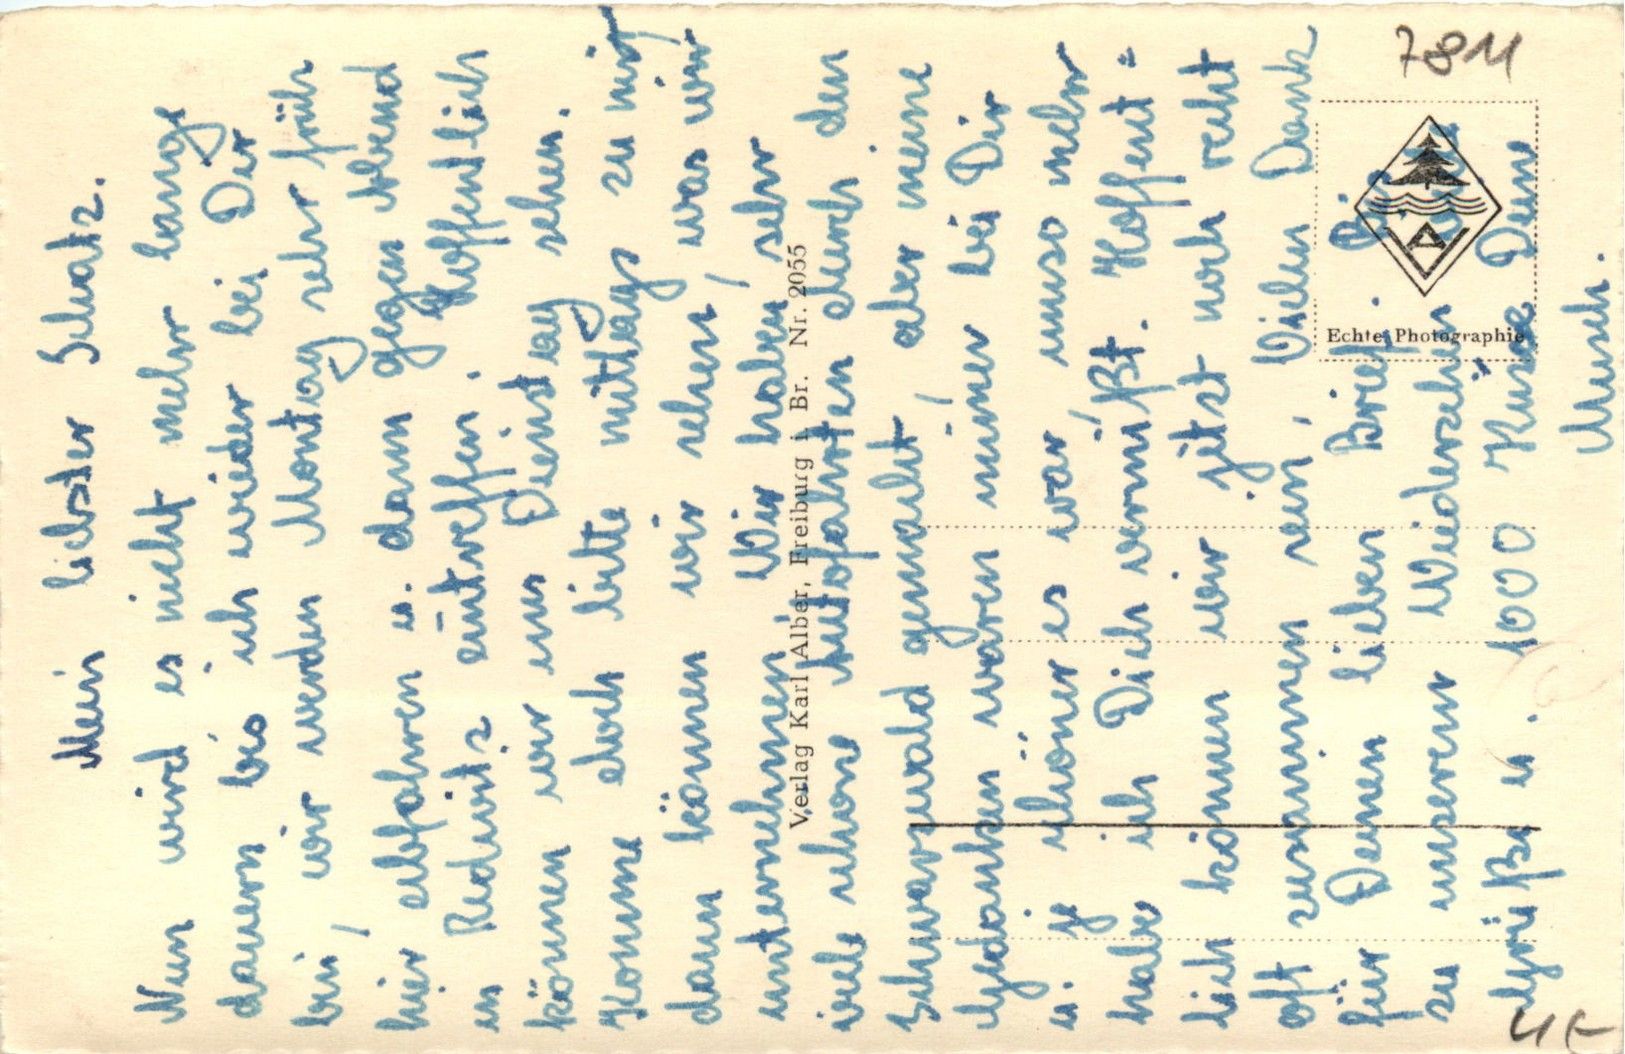 Mein liebster Schatz.
Nun wird es nicht mehr lange
dauern bis ich wieder bei Dir
bin, wir werden Montag sehr früh
hier abfahren u. dann gegen Abend
in Redwitz eintreffen. Hoffentlich
können wir uns Dienstag sehen.
Komme doch bitte mittags zu mir,
dann können wir sehen, was wir
unternehmen. Wir haben sehr
viele schone Autofahrten durch den
Schwarzwald gemacht, aber meine
Gedanken waren immer bei Dir
u. je schöner es war, umso mehr
habe ich Dich vermißt. Hoffent-
lich können wir jetzt noch recht
oft zusammen sein, Vielen Dank
für Deinen lieben Brief. Bis
zu unserem Wiedersehen
Grüße u. 1000 Küsse Dein
Musch.
Verlag Karl Alber, Freiburg i. Br. Nr. 2055
Echte Photographie
7811